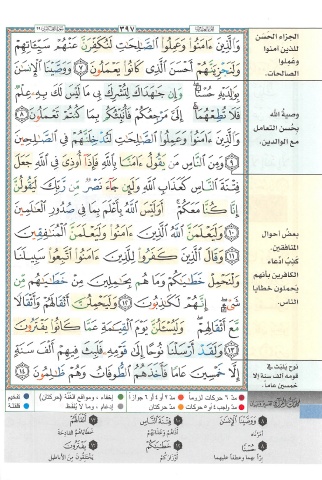 ٣٩٧
وَالَّذِينَ ءَامَنُوا وَعَمِلُوا الصَّالِحَاتِ لَنُكَفِّرَنَّ عَنْهُمْ سَيِّئَاتِهِمْ
وَلَنَجْزِيَنَّهُمْ أَحْسَنَ الَّذِى كَانُوا يَعْمَلُونَ ٧ وَوَصَّيْنَا الْإِنسَانَ
بِوَالِدَيْهِ حُسْنًا وَإِن جَاهَدَاكَ لِتُشْرِكَ بِى مَا لَيْسَ لَكَ بِهِ عِلْمٌ
فَلَا تُطِعْهُمَا إِلَىَّ مَرْجِعُكُمْ فَأُنَبِّئُكُم بِمَا كُنتُمْ تَعْمَلُونَ ٨
وَالَّذِينَ ءَامَنُوا وَعَمِلُوا الصَّالِحَاتِ لَنُدْخِلَنَّهُمْ فِى الصَّالِحِينَ
٩ وَمِنَ النَّاسِ مَن يَقُولُ ءَامَنَّا بِاللَّهِ فَإِذَا أُوذِىَ فِى اللَّهِ جَعَلَ
فِتْنَةَ النَّاسِ كَعَذَابِ اللَّهِ وَلَئِن جَاءَ نَصْرٌ مِّن رَّبِّكَ لَيَقُولُنَّ
إِنَّا كُنَّا مَعَكُمْ أَوَلَيْسَ اللَّهُ بِأَعْلَمَ بِمَا فِى صُدُورِ الْعَالَمِينَ
١٠ وَلَيَعْلَمَنَّ اللَّهُ الَّذِينَ ءَامَنُوا وَلَيَعْلَمَنَّ الْمُنَافِقِينَ
١١ وَقَالَ الَّذِينَ كَفَرُوا لِلَّذِينَ ءَامَنُوا اتَّبِعُوا سَبِيلَنَا
وَلْنَحْمِلْ خَطَايَاكُمْ وَمَا هُم بِحَامِلِينَ مِنْ خَطَايَاهُم مِّن
شَىْءٍ إِنَّهُمْ لَكَاذِبُونَ ١٢ وَلَيَحْمِلُنَّ أَثْقَالَهُمْ وَأَثْقَالًا
مَّعَ أَثْقَالِهِمْ وَلَيُسْئَلُنَّ يَوْمَ الْقِيَامَةِ عَمَّا كَانُوا يَفْتَرُونَ
١٣ وَلَقَدْ أَرْسَلْنَا نُوحًا إِلَى قَوْمِهِ فَلَبِثَ فِيهِمْ أَلْفَ سَنَةٍ
إِلَّا خَمْسِينَ عَامًا فَأَخَذَهُمُ الطُّوفَانُ وَهُمْ ظَالِمُونَ ١٤
الجزاء الحسن
للذين آمنوا
وعملوا
الصالحات.
وصية الله
بحسن التعامل
مع الوالدين.
بعض أحوال
المنافقين.
كذب ادعاء
الكافرين بأنهم
يحملون خطايا
الناس.
نوح يلبث في
قومه ألف سنة إلا
خمسين عاماً.
مد ٦ حركات لزوماً
مد ٢ أو ٤ أو ٦ جوازاً
إخفاء، ومواقع الغنة (حركتان)
تفخيم
مد واجب ٤ أو ٥ حركات
مد حركتان
إدغام، وما لا يلفظ
قلقلة
٨ وَوَصَّيْنَا الْإِنسَانَ
أمرناه
٨ حُسْنًا
براً بهما وعطفاً عليهما
١٠ فِتْنَةَ النَّاسِ
١٣ أَثْقَالَهُمْ
خطاياهم الفادحة
١٣ يَفْتَرُونَ
يختلقون من الأباطيل